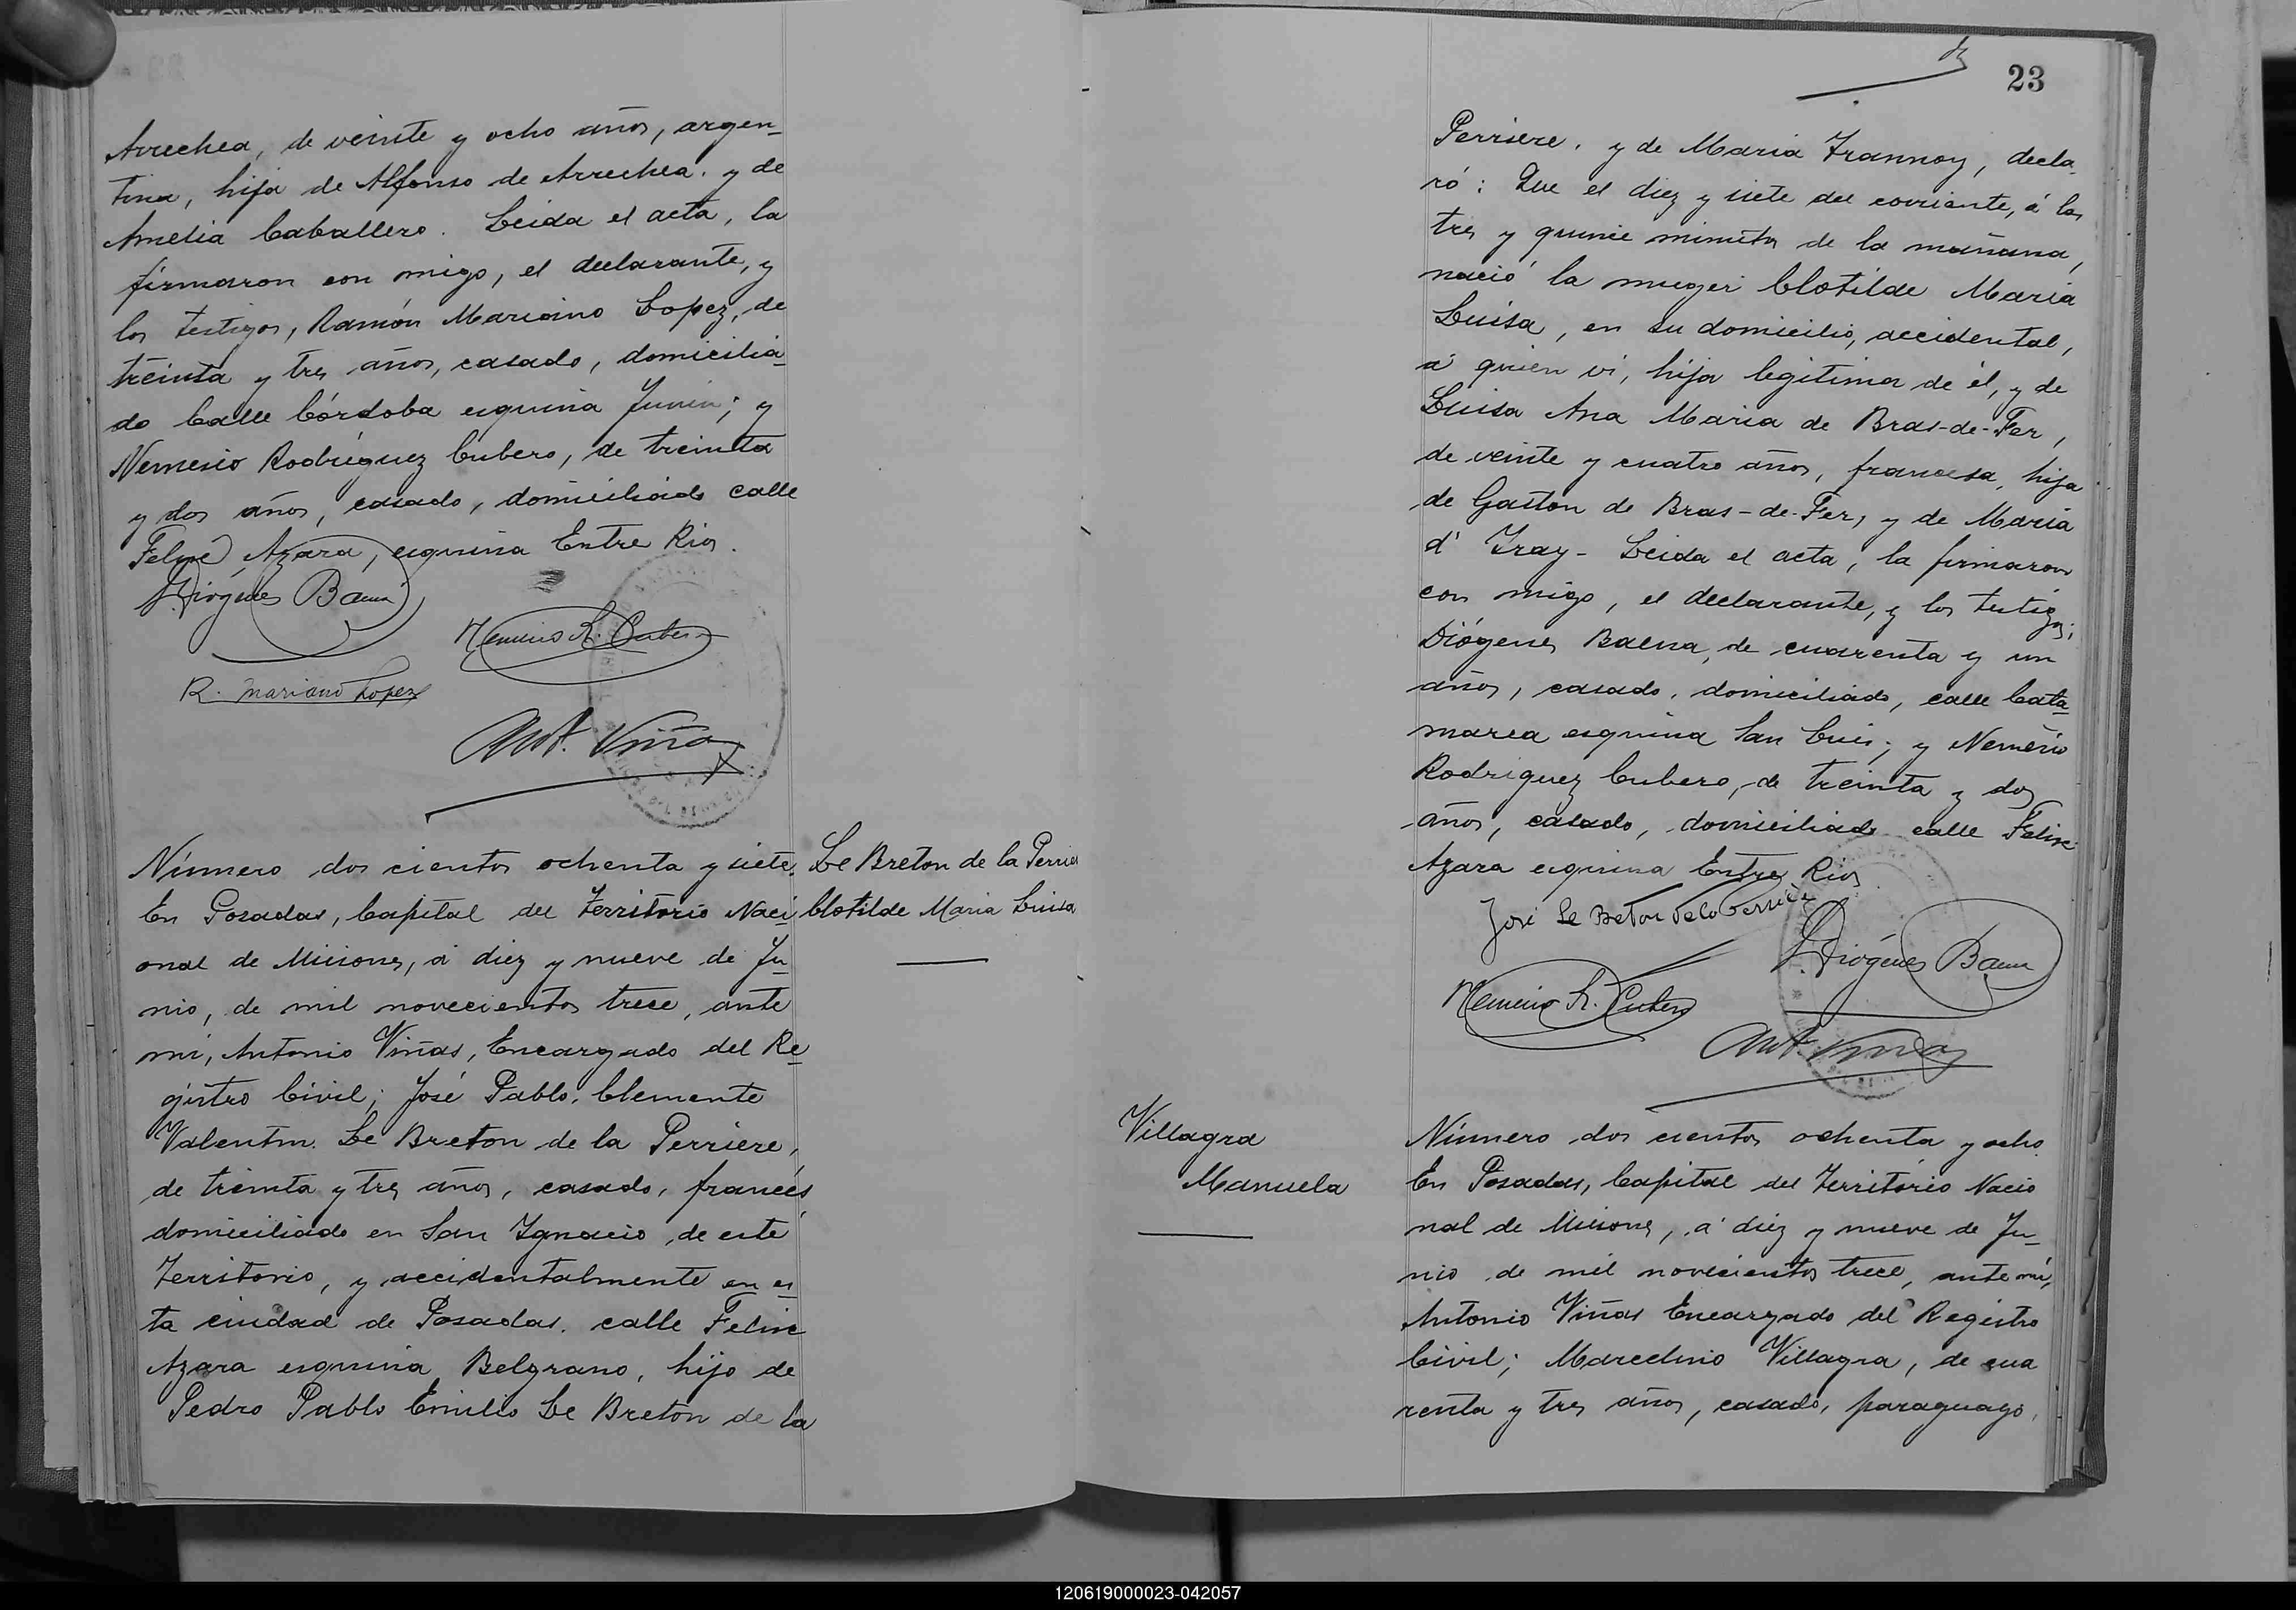 Arrechea, de veinte y ocho años, argen-
tina, hija de Alfonso de Arrechea. y de
Amelia Caballero. Leida el acta, la
firmaron con migo, el declarante, y
los testigos, Ramón Mariano Lopez, de
treinta y tres años, casado, domicilia-
do Calle Córdoba esquina Junin; y
Nemesio Rodriguez Cubero, de treinta
y dos años, casado, domiciliado calle
Felix Azara, esquina Entre Rios.
Diógenes Baena
Nemesio R. Cubero
R. Mariano Lopez
Ant. Viñas
Número dos cientos ochenta y siete.
En Posadas, Capital del Territorio Naci
onal de Misiones, á diez y nueve de Ju-
nio, de mil novecientos trece, ante
mi, Antonio Viñas, Encargado del Re-
gistro Civil; José Pablo, Clemente
Valentin. Le Breton de la Perriere,
de treinta y tres años, casado, francés,
domiciliado en San Ignacio, de este
Territorio, y accidentalmente en es-
ta ciudad de Posadas. calle Felix
Azara esquina Belgrano, hijo de
Pedro Pablo Emilio Le Breton de la
Le Breton de la Perrier
Clotilde Maria Luisa
23
Perriere. y de Maria Frannoy, decla-
ró: Que el diez y siete del corriente, á las
tres y quince minutos de la mañana,
nació la muger Clotilde Maria
Luisa, en su domicilio, accidental,
á quien vi, hija legitima de él, y de
Luisa Ana Maria de Bras-de-Fer,
de veinte y cuatro años, francesa, hija
de Gaston de Bras-de-Fer, y de Maria
d' Iray- Leida el acta, la firmaron
con migo, el declarante, y los testigos;
Diógenes Baena, de cuarenta y un
años, casado, domiciliado, calle Cata-
marca esquina San Luis; y Nemesio
Rodriguez Cubero, de treinta y dos
años, casado, domiciliado calle Felix
Azara esquina Entre Rios
José Le Breton de la Perrière
Diógenes Baena
Nemesio R. Cubero
Ant. Viñas
Villagra
Manuela
Número dos cientos ochenta y ocho
En Posadas, Capital del Territorio Nacio
nal de Misiones, á diez y nueve de Ju-
nio de mil novecientos trece, ante mi,
Antonio Viñas Encargado del Registro
Civil; Marcelino Villagra, de cua
renta y tres años, casado, paraguayo,
120619000023-042057